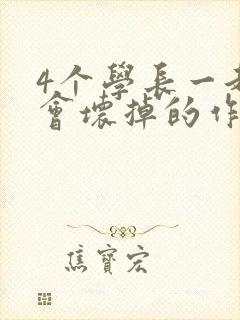 4个學長一
會壞掉的作
焦寶宏